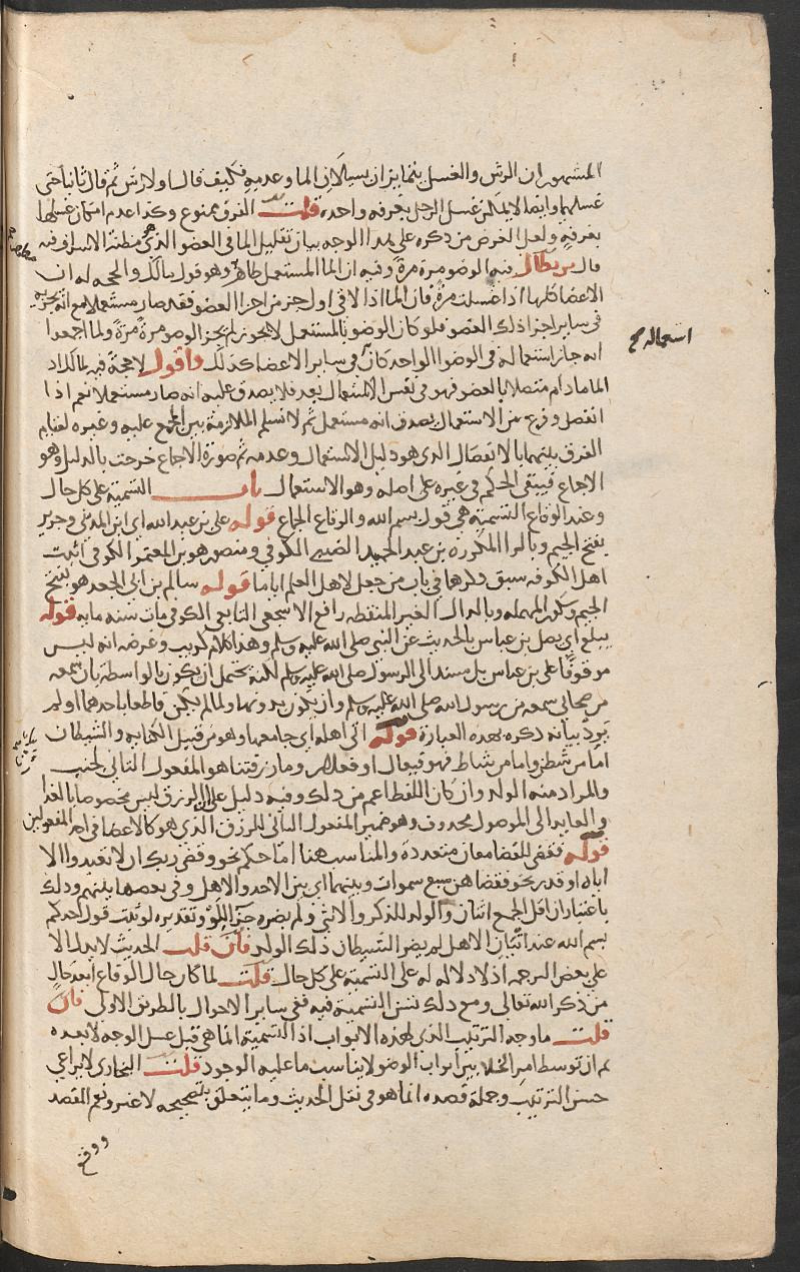 المشهور ان الرش والغسل يتمايزان بسيلان الما وعدمه فكيف قال اولا رش ثم قال ثانيا حتى
غسلها وايضا لا يمكن غسل الرجل بغرفة واحدة قلت الفرق ممنوع وكذا عدم امكان غسلها
بغرفة ولعل الغرض من ذكره على هذا الوجه بيان تقليل الما في العضو الذي هو مظنة الاسراف فيه
قال بن بطال فيه الوضو مرة مرة وفيه ان الما المستعمل طاهر وهو قول مالك والحجة له ان
الاعضا كلها اذا غسلت مرة فان الما اذا لاقى اول جزء من اجزا العضو فقد صار مستعملا مع انه يجزيه
في ساير اجزا ذلك العضو فلو كان الوضو بالمستعمل لا يجوز لم يجز الوضو مرة مرة ولما اجمعوا
انه جاز استعماله في الوضو الواحد كان في ساير الاعضا كذلك واقول لا حجة فيه لمالك اذ
الما ما دام متصلا بالعضو فهو في نفس الاستعمال بعد فلا يصدق عليه انه صار مستعملا نعم اذا
انفصل وفرغ من الاستعمال يصدق انه مستعمل ثم لا نسلم الملازمة بين المجمع عليه وغيره لقيام
الفرق بينهما بالانفصال الذي هو دليل الاستعمال وعدمه ثم صورة الاجماع خرجت بالدليل وهو
الاجماع فيبقى الحكم في غيره على اصله وهو الاستعمال باب التسمية على كل حال
وعند الوقاع التسمية هي قول بسم الله والوقاع الجماع قوله علي بن عبد الله اي ابن المديني وجرير
بفتح الجيم وبالرا المكررة بن عبد الحميد الضبي الكوفي ومنصور هو بن المعتمر الكوفي اثبت
اهل الكوفه سبق ذكرهما في باب من جعل لاهل العلم اياما قوله سالم بن ابي الجعد هو بفتح
الجيم وسكون المهملة وبالدال الغير المنقطه رافع الاشجعي التابعي الكوفي مات سنه مايه قوله
يبلغ اي يصل بن عباس بالحديث عن النبي صلى الله عليه وسلم وهذا كلام كريب وغرضه انه ليس
موقوفا على بن عباس بل مسند الى الرسول صلى الله عليه وسلم لكنه يحتمل ان يكون بالواسطة بان سمعه
من صحابي سمعه من رسول الله صلى الله عليه وسلم وان يكون بدونها ولما لم يكن قاطعا باحدهما او لم
يرد بيانه ذكره بهذه العبارة قوله اتى اهله اي جامعها وهو من قبيل الكناية والشيطان
اما من شطن واما من شاط فهو فيعال او فعلان وما رزقتنا هو المفعول الثاني لجنب
والمراد منه الولد وان كان اللفظ اعم من ذلك وفيه دليل على ان الرزق ليس مخصوصا بالغذا
والعايد الى الموصول محذوف وهو ضمير المفعول الثاني للرزق الذي هو كالاعطا في اخذ المفعولين
قوله فقضي للقضا معان متعددة والمناسب هنا اما حكم نحو وقضى ربك ان لا تعبدوا الا
اياه او قدر نحو فقضاهن سبع سموات وبينهما اي بين الاحد والاهل وفي بعضها بينهم وذلك
باعتبار ان اقل الجمع اثنان والولد للذكر والانثى ولم يضره جزاء للو وتقديره لو ثبت قول احدكم
بسم الله عند اتيان الاهل لم يضر الشيطان ذلك الولد فان قلت الحديث لا يدل الا
على بعض الترجمه اذ لا دلالة له على التسمية على كل حال قلت لما كان حال الوقاع ابعد حال
من ذكر الله تعالى ومع ذلك تسن التسمية فيه ففي ساير الاحوال بالطريق الاولى فان
قلت ما وجه الترتيب الذي لهذه الابواب اذ التسمية انما هي قبل غسل الوجه لا بعده
ثم ان توسط امر الخلا بين ابواب الوضو لا يناسب ما عليه الوجود قلت البخاري لا يراعي
حسن الترتيب وجملة قصده انما هو في نقل الحديث وما يتعلق بتصحيحه لا غير ونعم المقصد
ووقع
استعماله صح